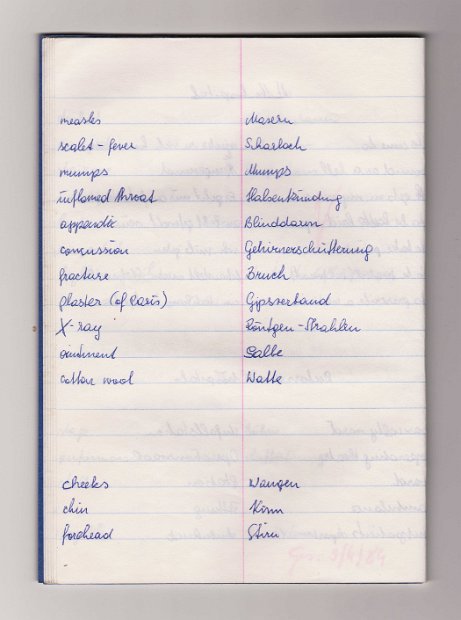 measles Masern
scalet-fever Scharlach
mumps Mumps
inflamed throat Halsentzündung
appendix Blinddarm
concussion Gehirnerschütterung
fracture Bruch
plaster (of Paris) Gipsverband
X-ray Röntgen-Strahlen
ointment Salbe
cotton wool Watte
cheeks Wangen
chin Kinn
forehead Stirn